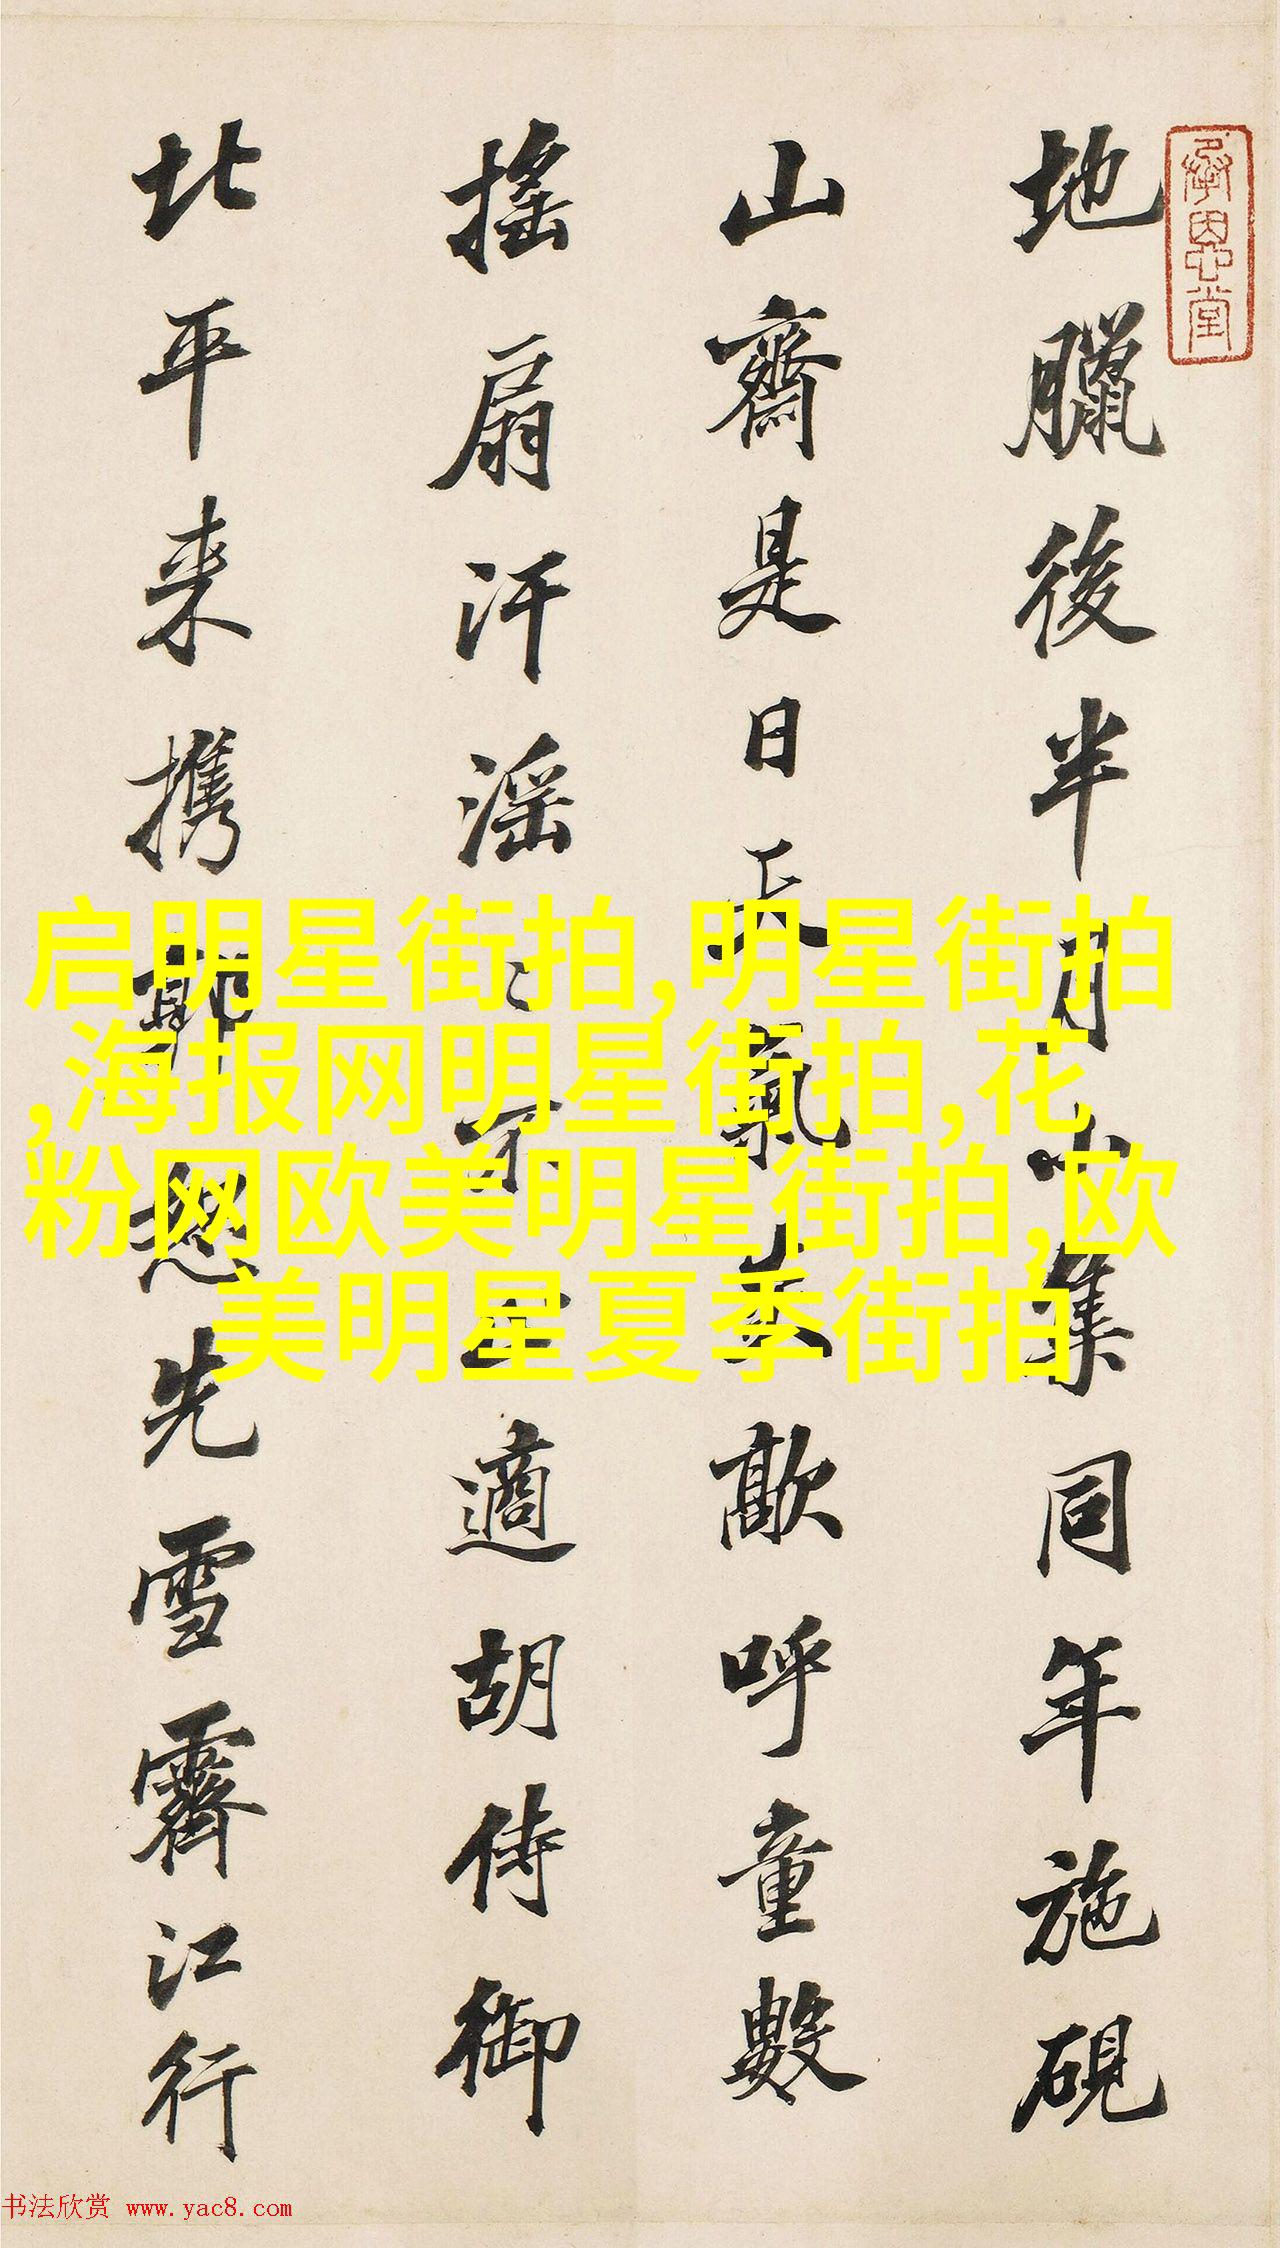 承恩堂
地臘後半月小集同年施硯
山齋是日天氣炎歊呼童數
搖扇汗滛〻不止適胡侍御
北平来攜郭恕先雪霽江行
启明星街拍,明星街拍
,海报网明星街拍,花
粉网欧美明星街拍,欧
美明星夏季街拍
书法欣赏 www.yac8.com